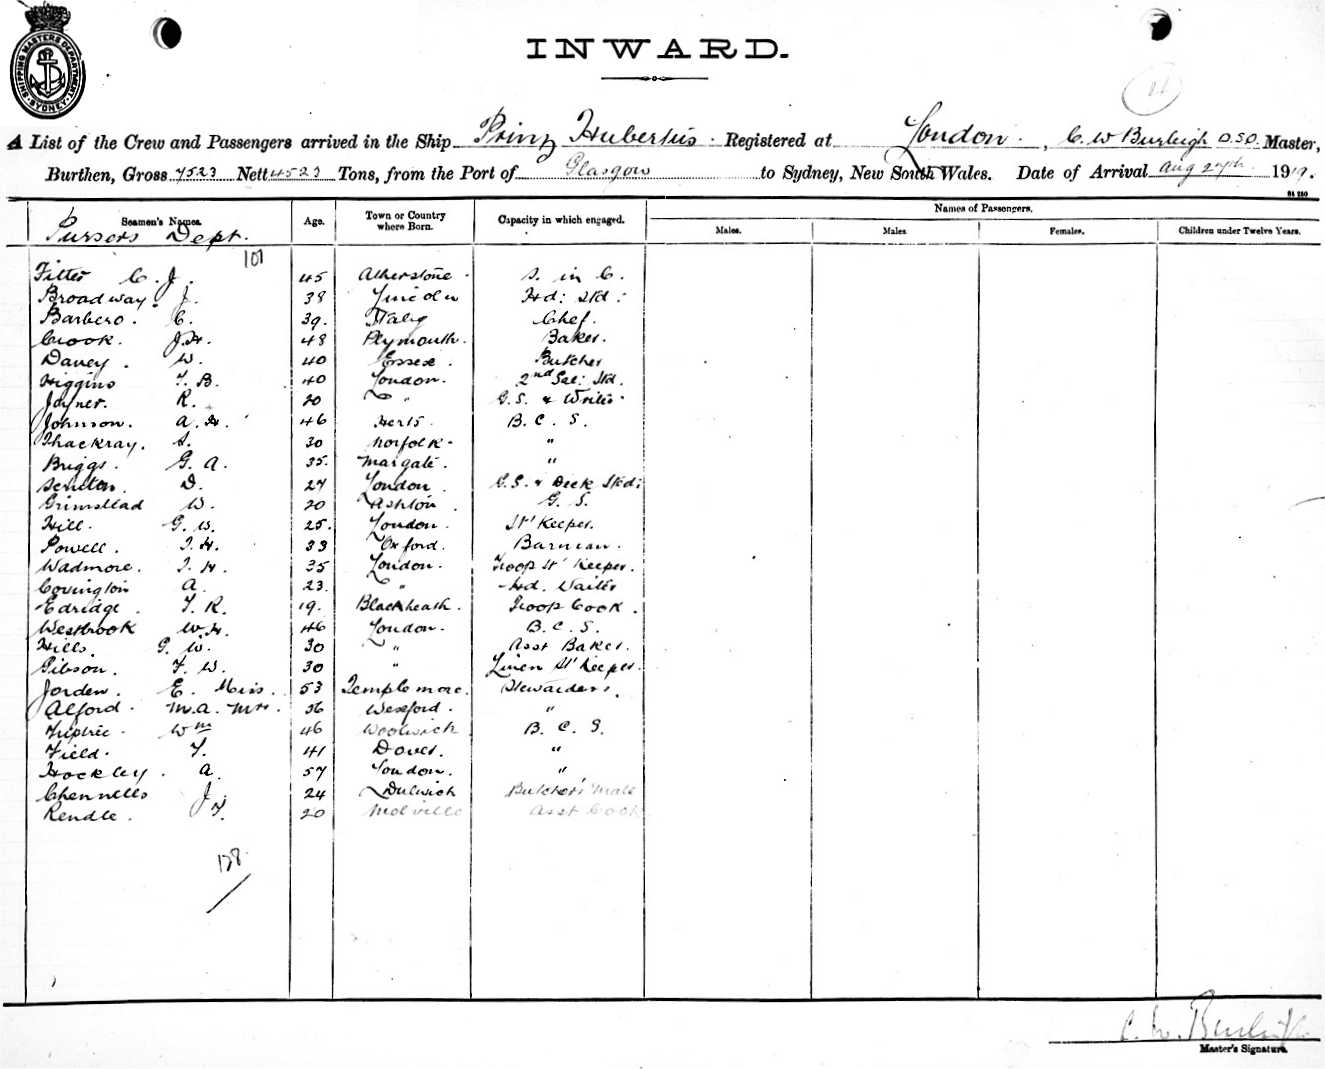 SHIPPING MASTERS DEPARTMENT SYDNEY
INWARD.
A List of the Crew and Passengers arrived in the Ship Prinz Hubertus. Registered at London. , C. W Burleigh D.S.O. Master,
Burthen, Gross 7523 Nett 4523 Tons, from the Port of Glasgow to Sydney, New South Wales. Date of Arrival Aug 27th 1919.
Seamen's Names. Age. Town or Country where Born. Capacity in which engaged. Names of Passengers.
Males. Males Females. Children under Twelve Years.
Pursers Dept.
101
Fitter C. J. 45 Atherstone. S. in C.
Broadway. J. 38 Lincoln Hd: Std:
Barbero. C. 39. Italy Chef.
Crook. J.H. 48 Plymouth. Baker.
Davey. W. 40 Essex. Butcher
Higgins F. B. 40 London. 2nd Sal: Std.
Joyner. R. 20 " G.S. & Writer.
Johnson. A. H. 46 Herts. B. C. S.
Thackray. S. 30 Norfolk. "
Briggs. G. A. 35. Margate. "
D. 27 London. G.S. & Deck Std:
Grimstead W. 20 Ashton. G. S.
Hill. G. W. 25. London. St' Keeper.
Powell. T. H. 33 Oxford. Barman.
Wadmore. T. H. 35 London. Troop St' Keeper.
Covington A. 23. " Hd. Waiter
Edridge. F. R. 19. Blackheath. Troop Cook.
Westbrook W.H. 46 London. B. C. S.
Hills. G. W. 30 " Asst Baker.
Gibson. F. W. 30 " Linen St' Keeper.
Jorden. E. Miss. 53 Templemore. Stewardess.
Alford. M. A. Mrs. 36 Wexford. "
Wm 46 Woolwich B. C. S.
Field. F. 41 Dover. "
Hockley. A. 57 London. "
Chennells J. 24 Dulwich Butcher's Mate
Rendle. F. 20 Asst Cook
128
C. W. Burleigh
Master's Signature.